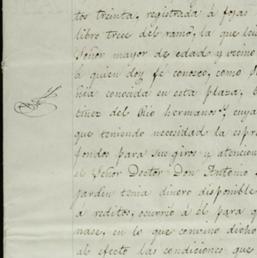 tos treinta, registrada á fojas
libro trece del ramo, la que le
Señor mayor de edad y vecino
á quien doy fé conosco, como
ñia conocida en esta plaza,
tinez del Rio hermanos", cuya
que teniendo necesidad la espre
fondos para sus giros y atencion
el Señor Doctor Don Antonio
Jardin tenia dinero disponible
a reditos, ocurrió á él para q
nase, en lo que convino dicho
al efecto las condiciones que